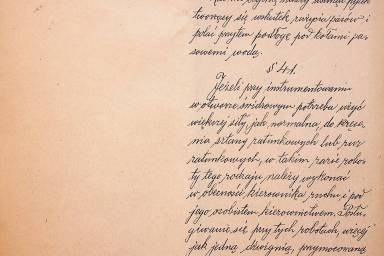 tworzący się wskutek zużycia parów i
prłać przytem podłogę pod kotłami pa-
rowemi wodą.
§ 41.
Jeżeli przy instrumentowaniu
w otworze świdrowym potrzeba użyć
większej siły, jak normalna, do kręce-
nia sztany ratunkowych lub rur
ratunkowych, w takim razie robo-
ty tego rodzaju należy wykonać
w obecności kierownika ruchu i pod
jego osobistem kierownictwem. Posłu-
giwanie się przy tych robotach, więcej
jak jedną dźwignią, przymocowaną